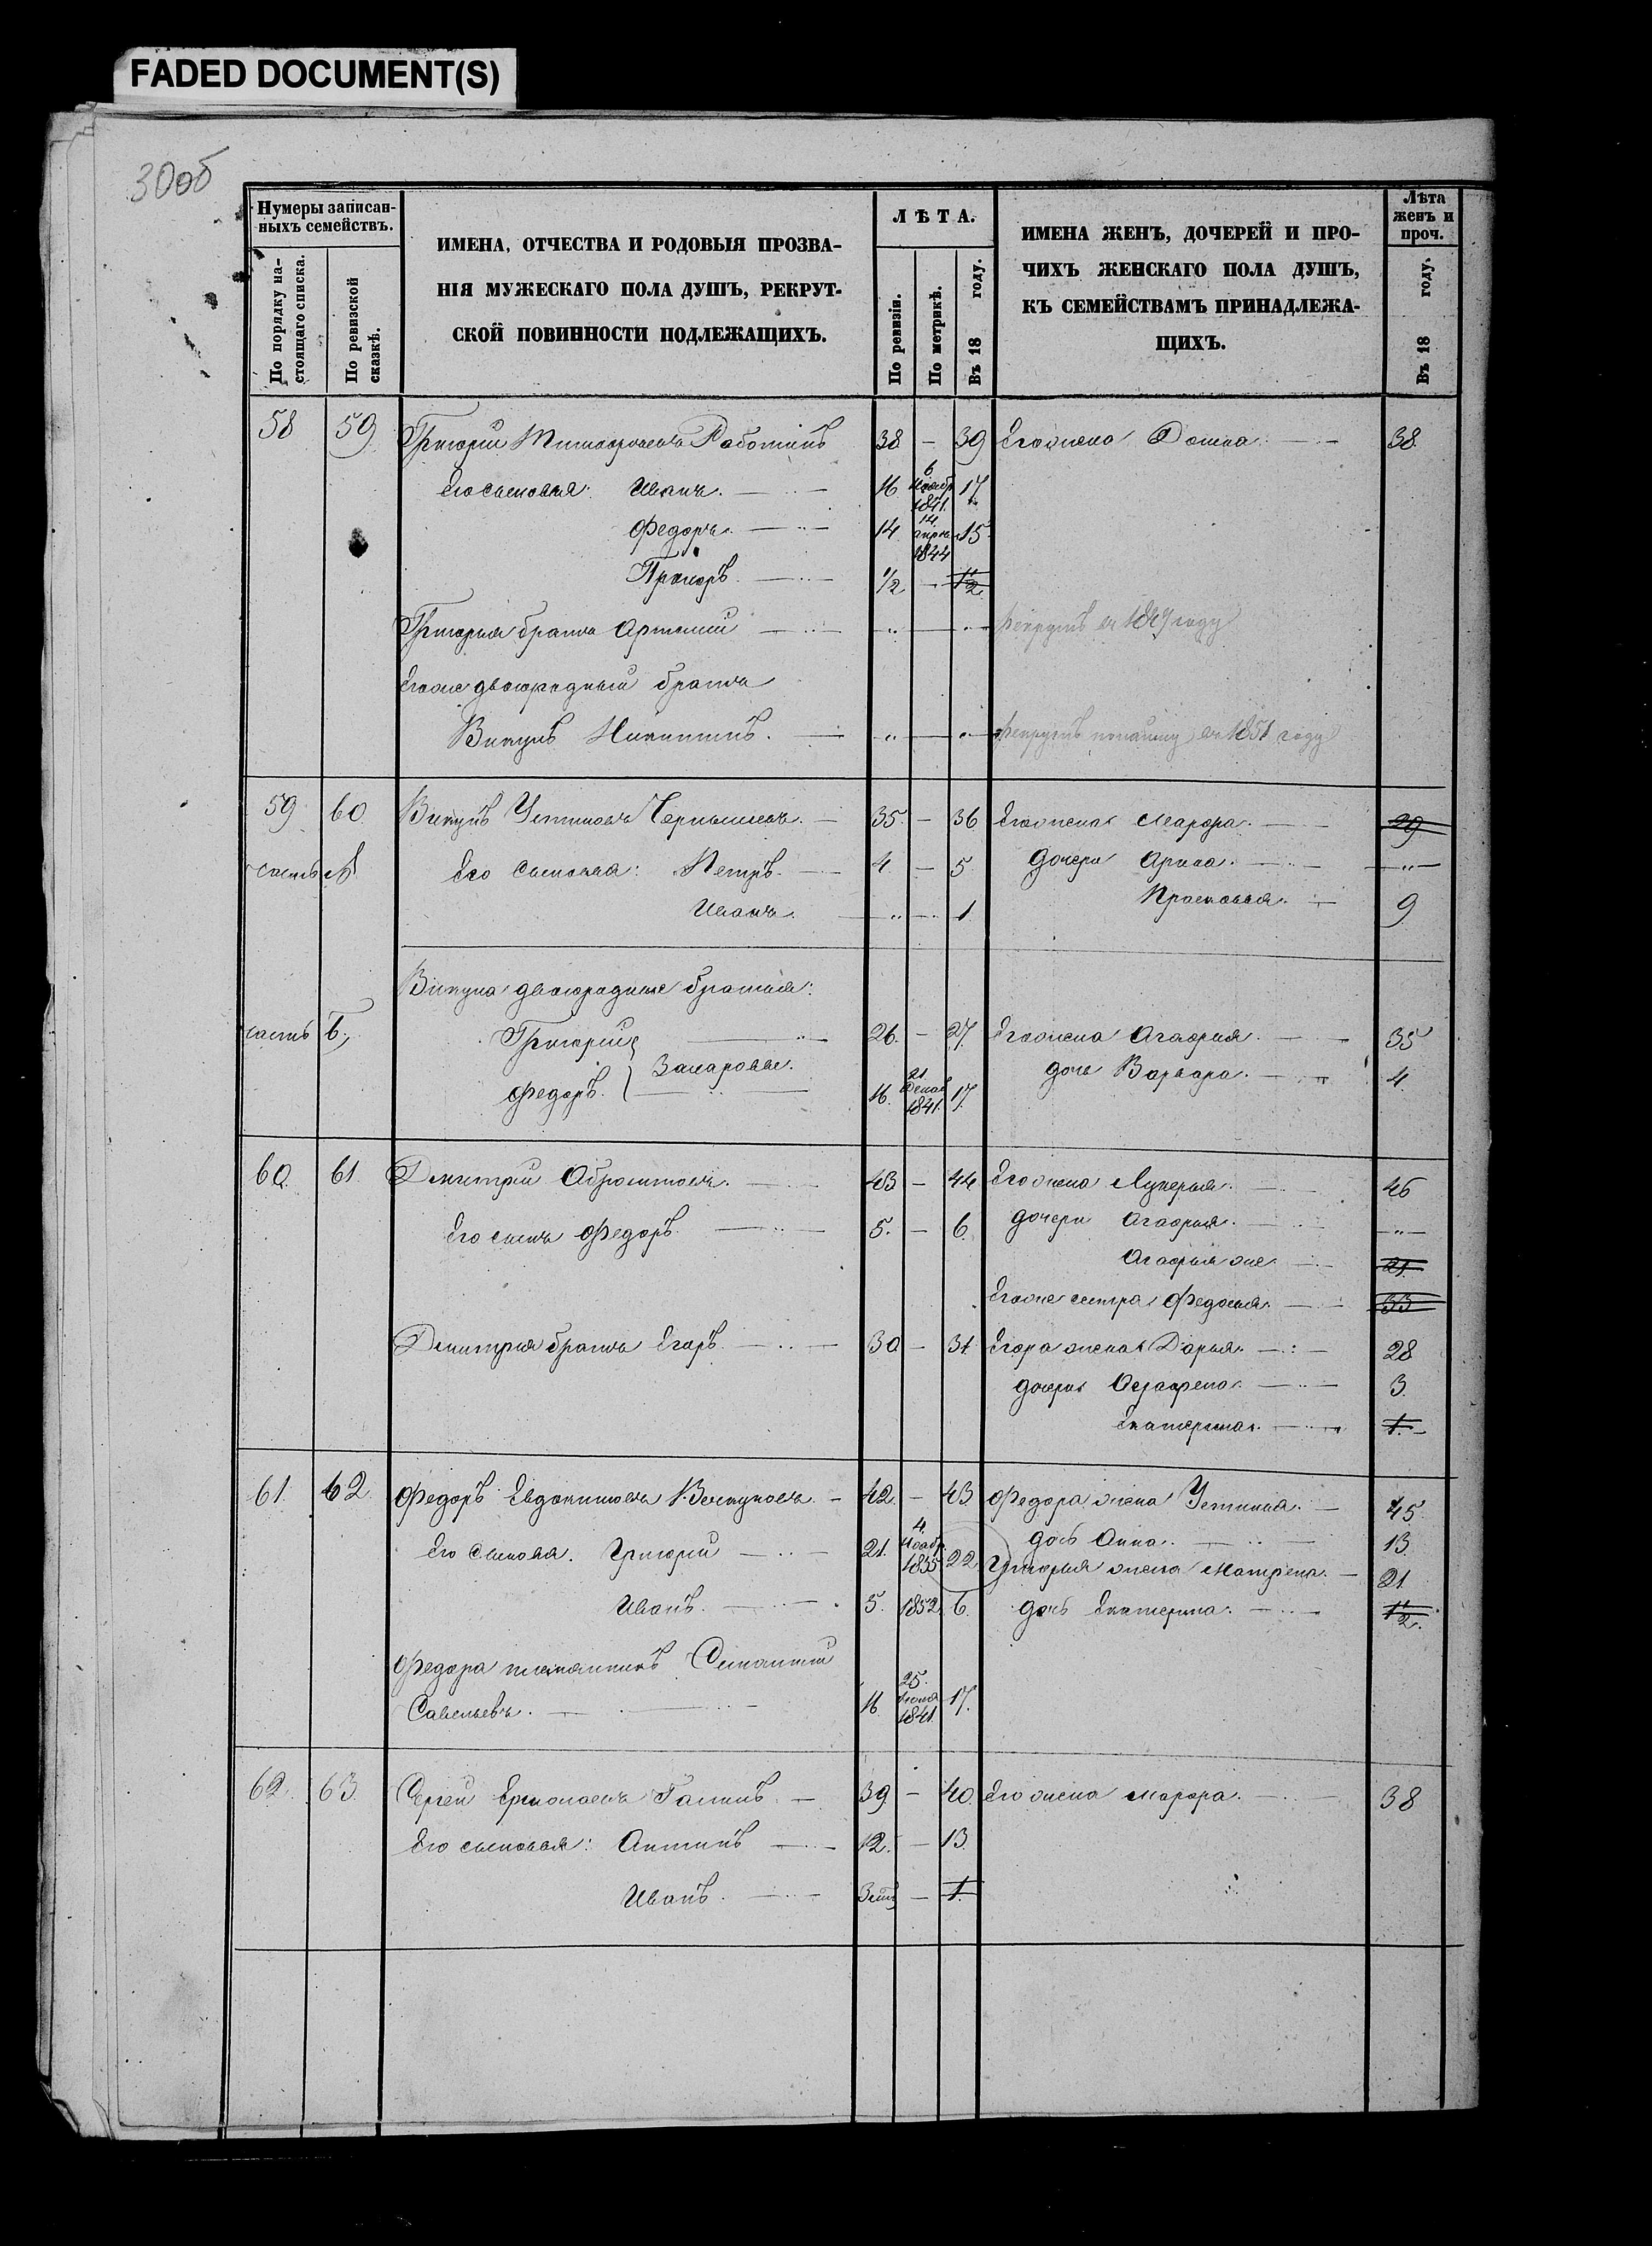 FADED DOCUMENT(S)
30об
Нумеры записан-
ныхъ семействъ.
По порядку на-
стоящаго списка.
По ревизской
сказкѣ.
ИМЕНА, ОТЧЕСТВА И РОДОВЫЯ ПРОЗВА-
НІЯ МУЖЕСКАГО ПОЛА ДУШЪ, РЕКРУТ-
СКОЙ ПОВИННОСТИ ПОДЛЕЖАЩИХЪ.
ЛѢТА.
По ревизіи.
По метрикѣ.
Въ 18 году.
ИМЕНА ЖЕНЪ, ДОЧЕРЕЙ И ПРО-
ЧИХЪ ЖЕНСКАГО ПОЛА ДУШЪ,
КЪ СЕМЕЙСТВАМЪ ПРИНАДЛЕЖА-
ЩИХЪ.
Лѣта
женъ и
проч.
Въ 18 году.
58 59 Григорій 38 — 39 Его жена 38
Его сыновья: Иванъ. 16 6 Нояб. 1841. 17
Федоръ. 14 14 апрѣ. 1844 15
1/2 — 1 1/2
Григорья братъ Артемій — „ — „ — рекрутъ въ 1847 году
Его же двоюродный братъ
Викулъ Никитинъ. — „ — „ — рекрутъ въ 1851 году
59 60 Викулъ Устиновъ Чернышевъ. — 35. — 36 Его жена Марфа. 29
часть А Его сыновья: Петръ. 4 — 5 дочери Арина. — „ —
Иванъ. — „ — 1 Прасковья. 9
Викула двоюродные братья:
часть Б, Григорій 26. — 27. Его жена Агафья. 35
Федоръ. } Захаровы. 16. 21 Декаб 1841. 17. дочь Варвара. 4
60 61 Дмитрій Абросимовъ. 43 — 44 Его жена Лукерья. 46
Его сынъ Федоръ. 5. — 6 дочери Агафья. — „ —
Агафья же 21
Его же сестра Федосья. 33
Дмитрія братъ Егоръ. 30 — 31 Егора жена Дарья. 28
дочери 3
Екатерина. 1.
61. 62 Федоръ Евдокимовъ — 42. — 43 Федора жена Устинья. 45
Его сыновья. Григорій 21. 4. Нояб. 1835 22 дочь Анна. 13
Григорья жена Матрена. — 21
Иванъ. 5. 1852 6. дочь Екатерина. 1 1/2.
Федора племянникъ
Савельевъ. 16 25. 1841. 17.
62. 63. Сергей Ермолаевъ — 39 — 40. Его жена Марфа. 38
Его сыновья: Антипъ 12. — 13
Иванъ. — 1.